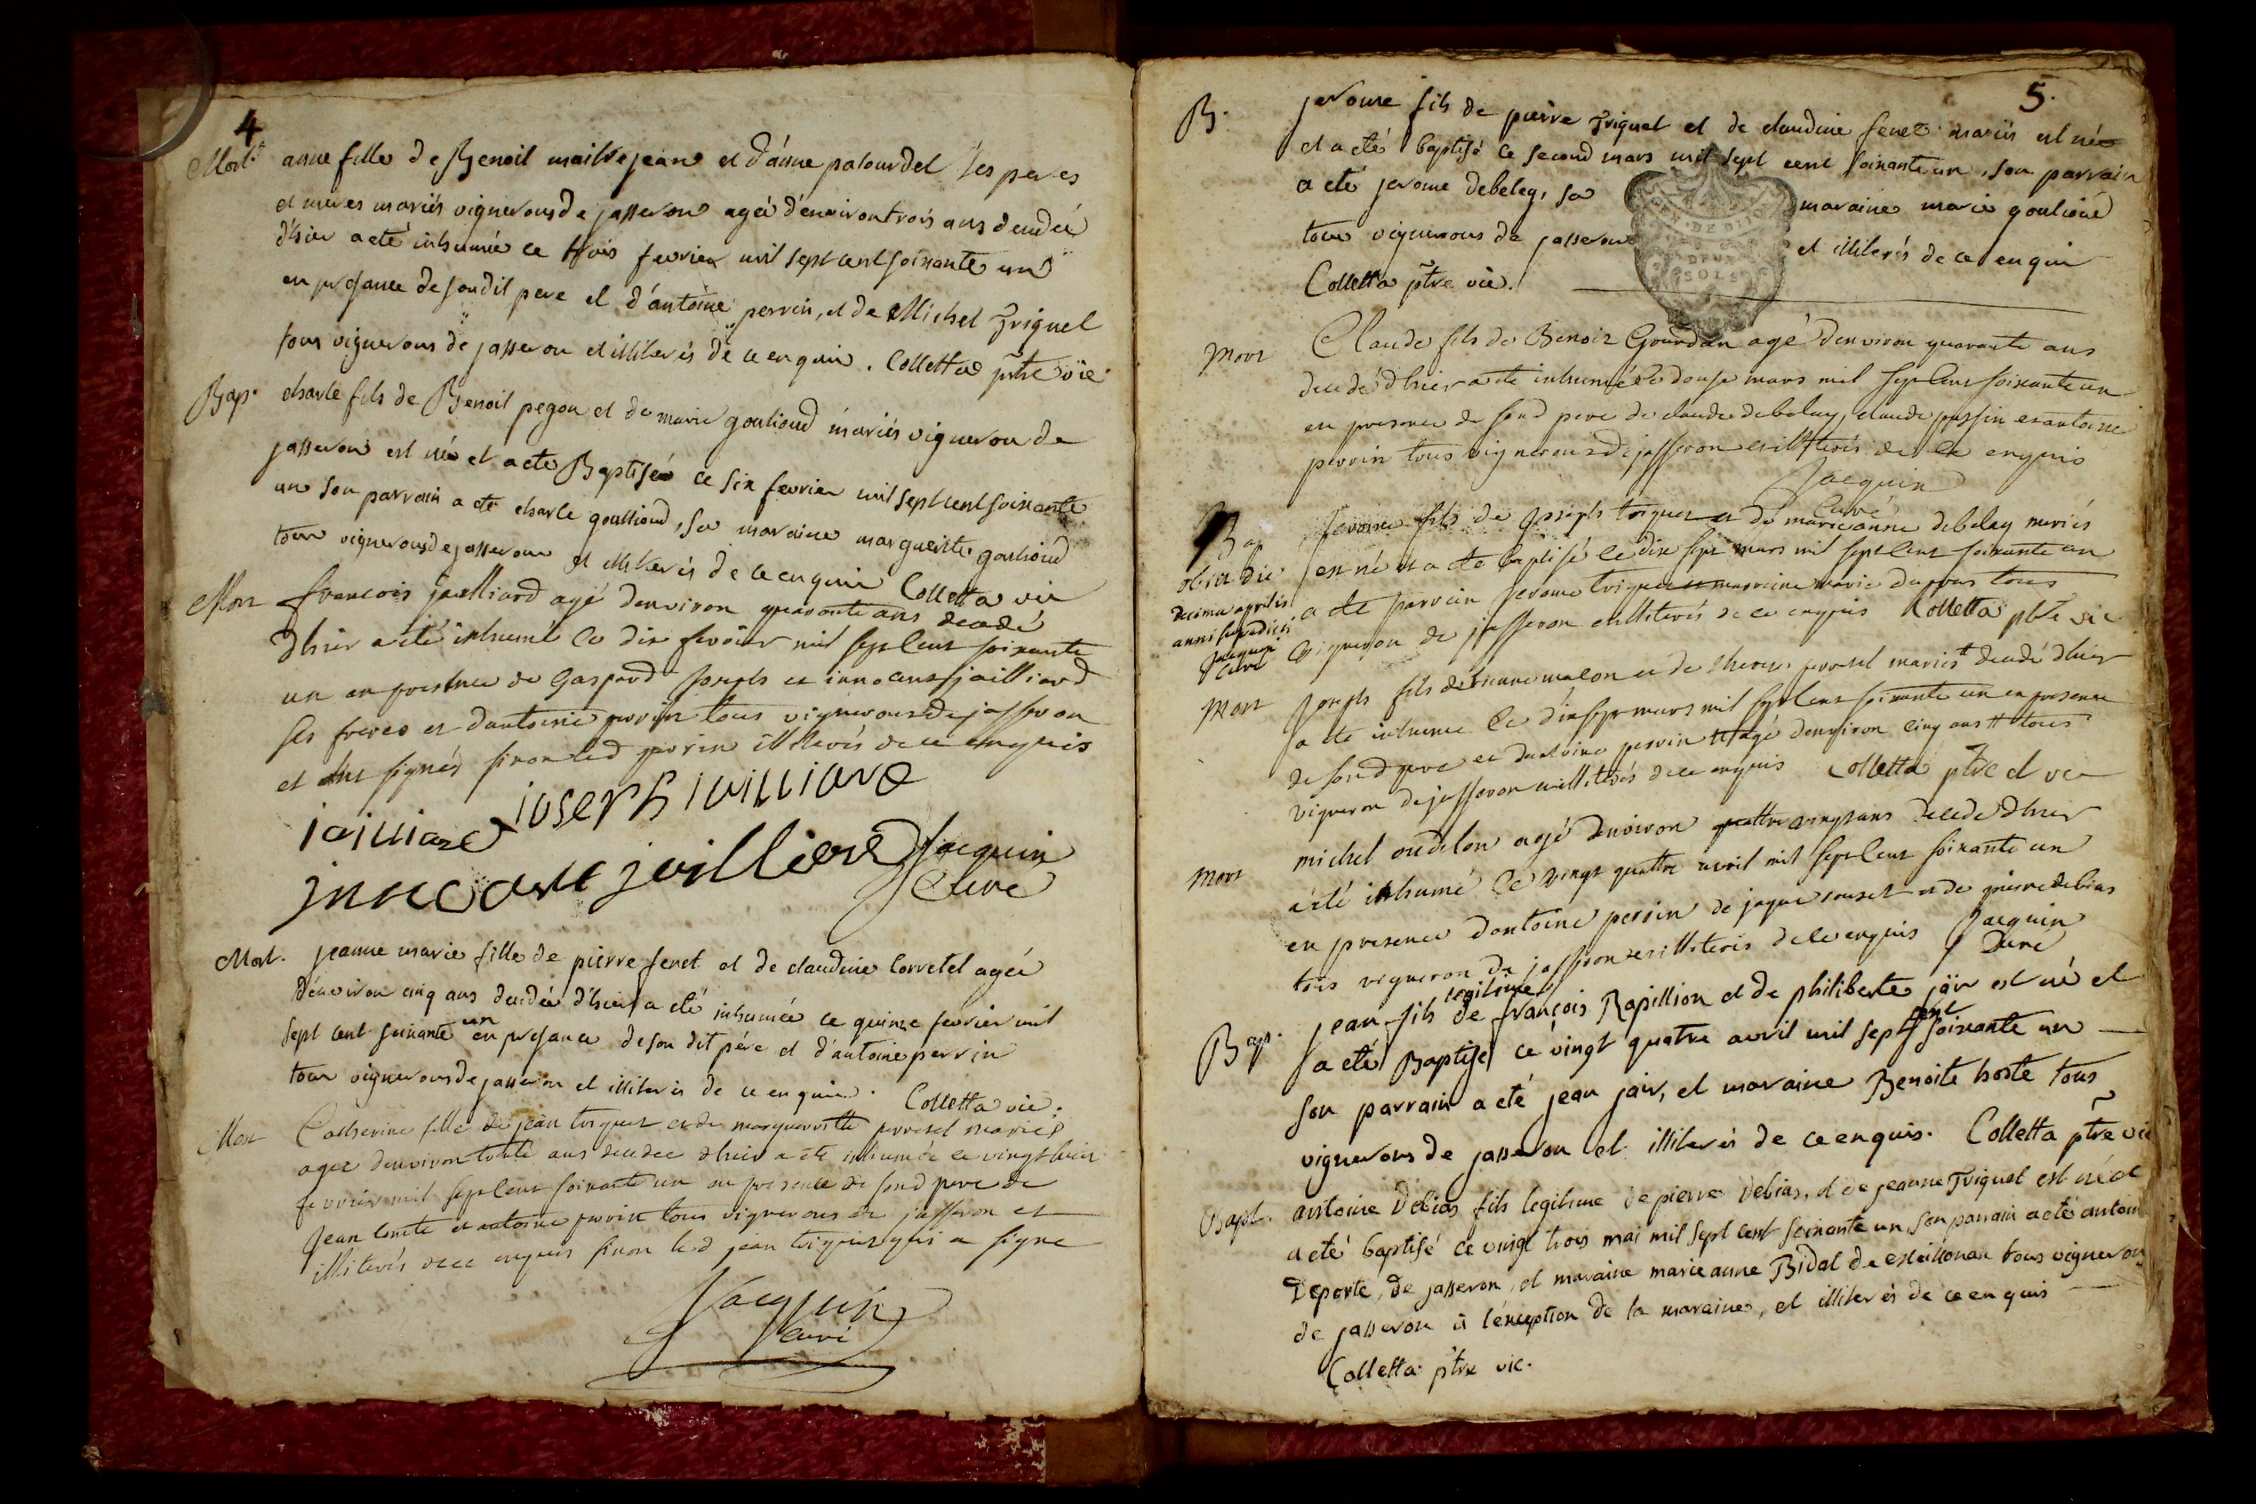 4
Mort. anne fille de Benoit maitrejean et d'anne palourdet ses peres
et meres mariés vignerons de jasseron agée d'environ trois ans decedée
d'hier a eté inhumée ce trois fevrier mil sept cent soixante un
en presance de son dit pere et d'antoine perrin, et de Michel Triquet
tous vignerons de jasseron et illiterés de ce enquis. Colletta ptre vic.
Bap. charle fils de Benoit pegon et de marie goulioud mariés vigneron de
jasseron est né et a eté Baptisé ce six fevrier mil sept cent soixante
un son parrain a eté charle goullioud, sa maraine marguerite goulioud
tous vignerons de jasseron et illiterés de ce enquis Colletta vic
Mort francois jailliard agé denviron quarante ans decedé
dhier a eté inhumé ce dix fevrier mil sept cent soixante
un en presence de Gaspard joseph et innocent jailliard
ses freres et dantoine perrin tous vignerons de jasseron
et ont signés sinon led perrin illiterés de ce enquis
jailliard ioseph iailliard
jnnocant jailliard Jacquin
Curé
Mort. jeanne marie fille de pierre fenet et de claudine Corretel agée
denviron cinq ans decedée d'hier a eté inhumée ce quinze fevrier mil
sept cent soixante un en presance de son dit pére et d'antoine perrin
tous vignerons de jasseron et illiterés de ce enquis. Colletta vic.
Mort Catherine fille de jean triquet et de marguerite pressel mariés
agée denviron trente ans decedee dhier a eté inhumée ce vingt huit
fevrier mil sept cent soixante un en presence de sond pere de
jean comte et antoine perrin tous vignerons de jasseron et
illiterés de ce enquis sinon led jean triquet qui a signé
Jacquin
curé
5.
B. jerome fils de pierre Triquet et de claudine fenet mariés est né
et a eté baptisé ce second mars mil sept cent soixante un, son parrain
a eté jerome debeley, sa maraine marie goulioud
tous vignerons de jasseron et illiterés de ce enquis
Colletta ptre vic.
GEN DE DIJON
SOLS
Mort Claude fils de Benoit Gourdan agé d'environ quarante ans
decedé dhier a eté inhumé ce douse mars mil sept cent soixante un
en presence de sond pere de claude debeley, claude et antoine
perrin tous vignerons de jasseron et illiterés de ce enquis
Jacquin
Curé
Bap jerome fils de joseph triquet et de marie anne debeley mariés
est né et a eté baptisé ce dix sept mars mil sept cent soixante un
a eté parrain jerome triquet et marraine marie tous
vigneron de jasseron et illiterés de ce enquis Colletta ptre vic
obiit die
decima aprilis
anni supradicti
Jacquin
Curé
Mort joseph fils detienne macon et de pressel mariés decedé dhier
a eté inhumé ce dix sept mars mil sept cent soixante un en presence
de sond pere et dantoine perrin # agé denviron cinq ans # tous
vigneron de jasseron et illiterés de ce enquis Colletta ptre et vic
Mort michel oudelon agé denviron quattre vingt ans decedé dhier
a eté inhumé ce vingt quattre avril mil sept cent soixante un
en presence dantoine perrin de jaque rouset et de pierre debias
tous vigneron de jasseron et illiterés de ce enquis Jacquin
Curé
Bap. jean fils legitime de françois Rapillion et de philiberte jair est né et
a eté Baptisé ce vingt quatre avril mil sept cent soixante un
son parrain a eté jean jair, et maraine Benoite hoste tous
vignerons de jasseron et illiterés de ce enquis. Colletta ptre vic
Bapt. antoine debias fils legitime de pierre debias, et de jeanne Triquet est né et
a eté baptisé ce vingt trois mai mil sept cent soixante un son parrain a eté antoine
deporte, de jasseron, et maraine marie anne Bidal de tous vigneron
de jasseron à l'exception de la maraine, et illiterés de ce enquis
Colletta ptre vic.